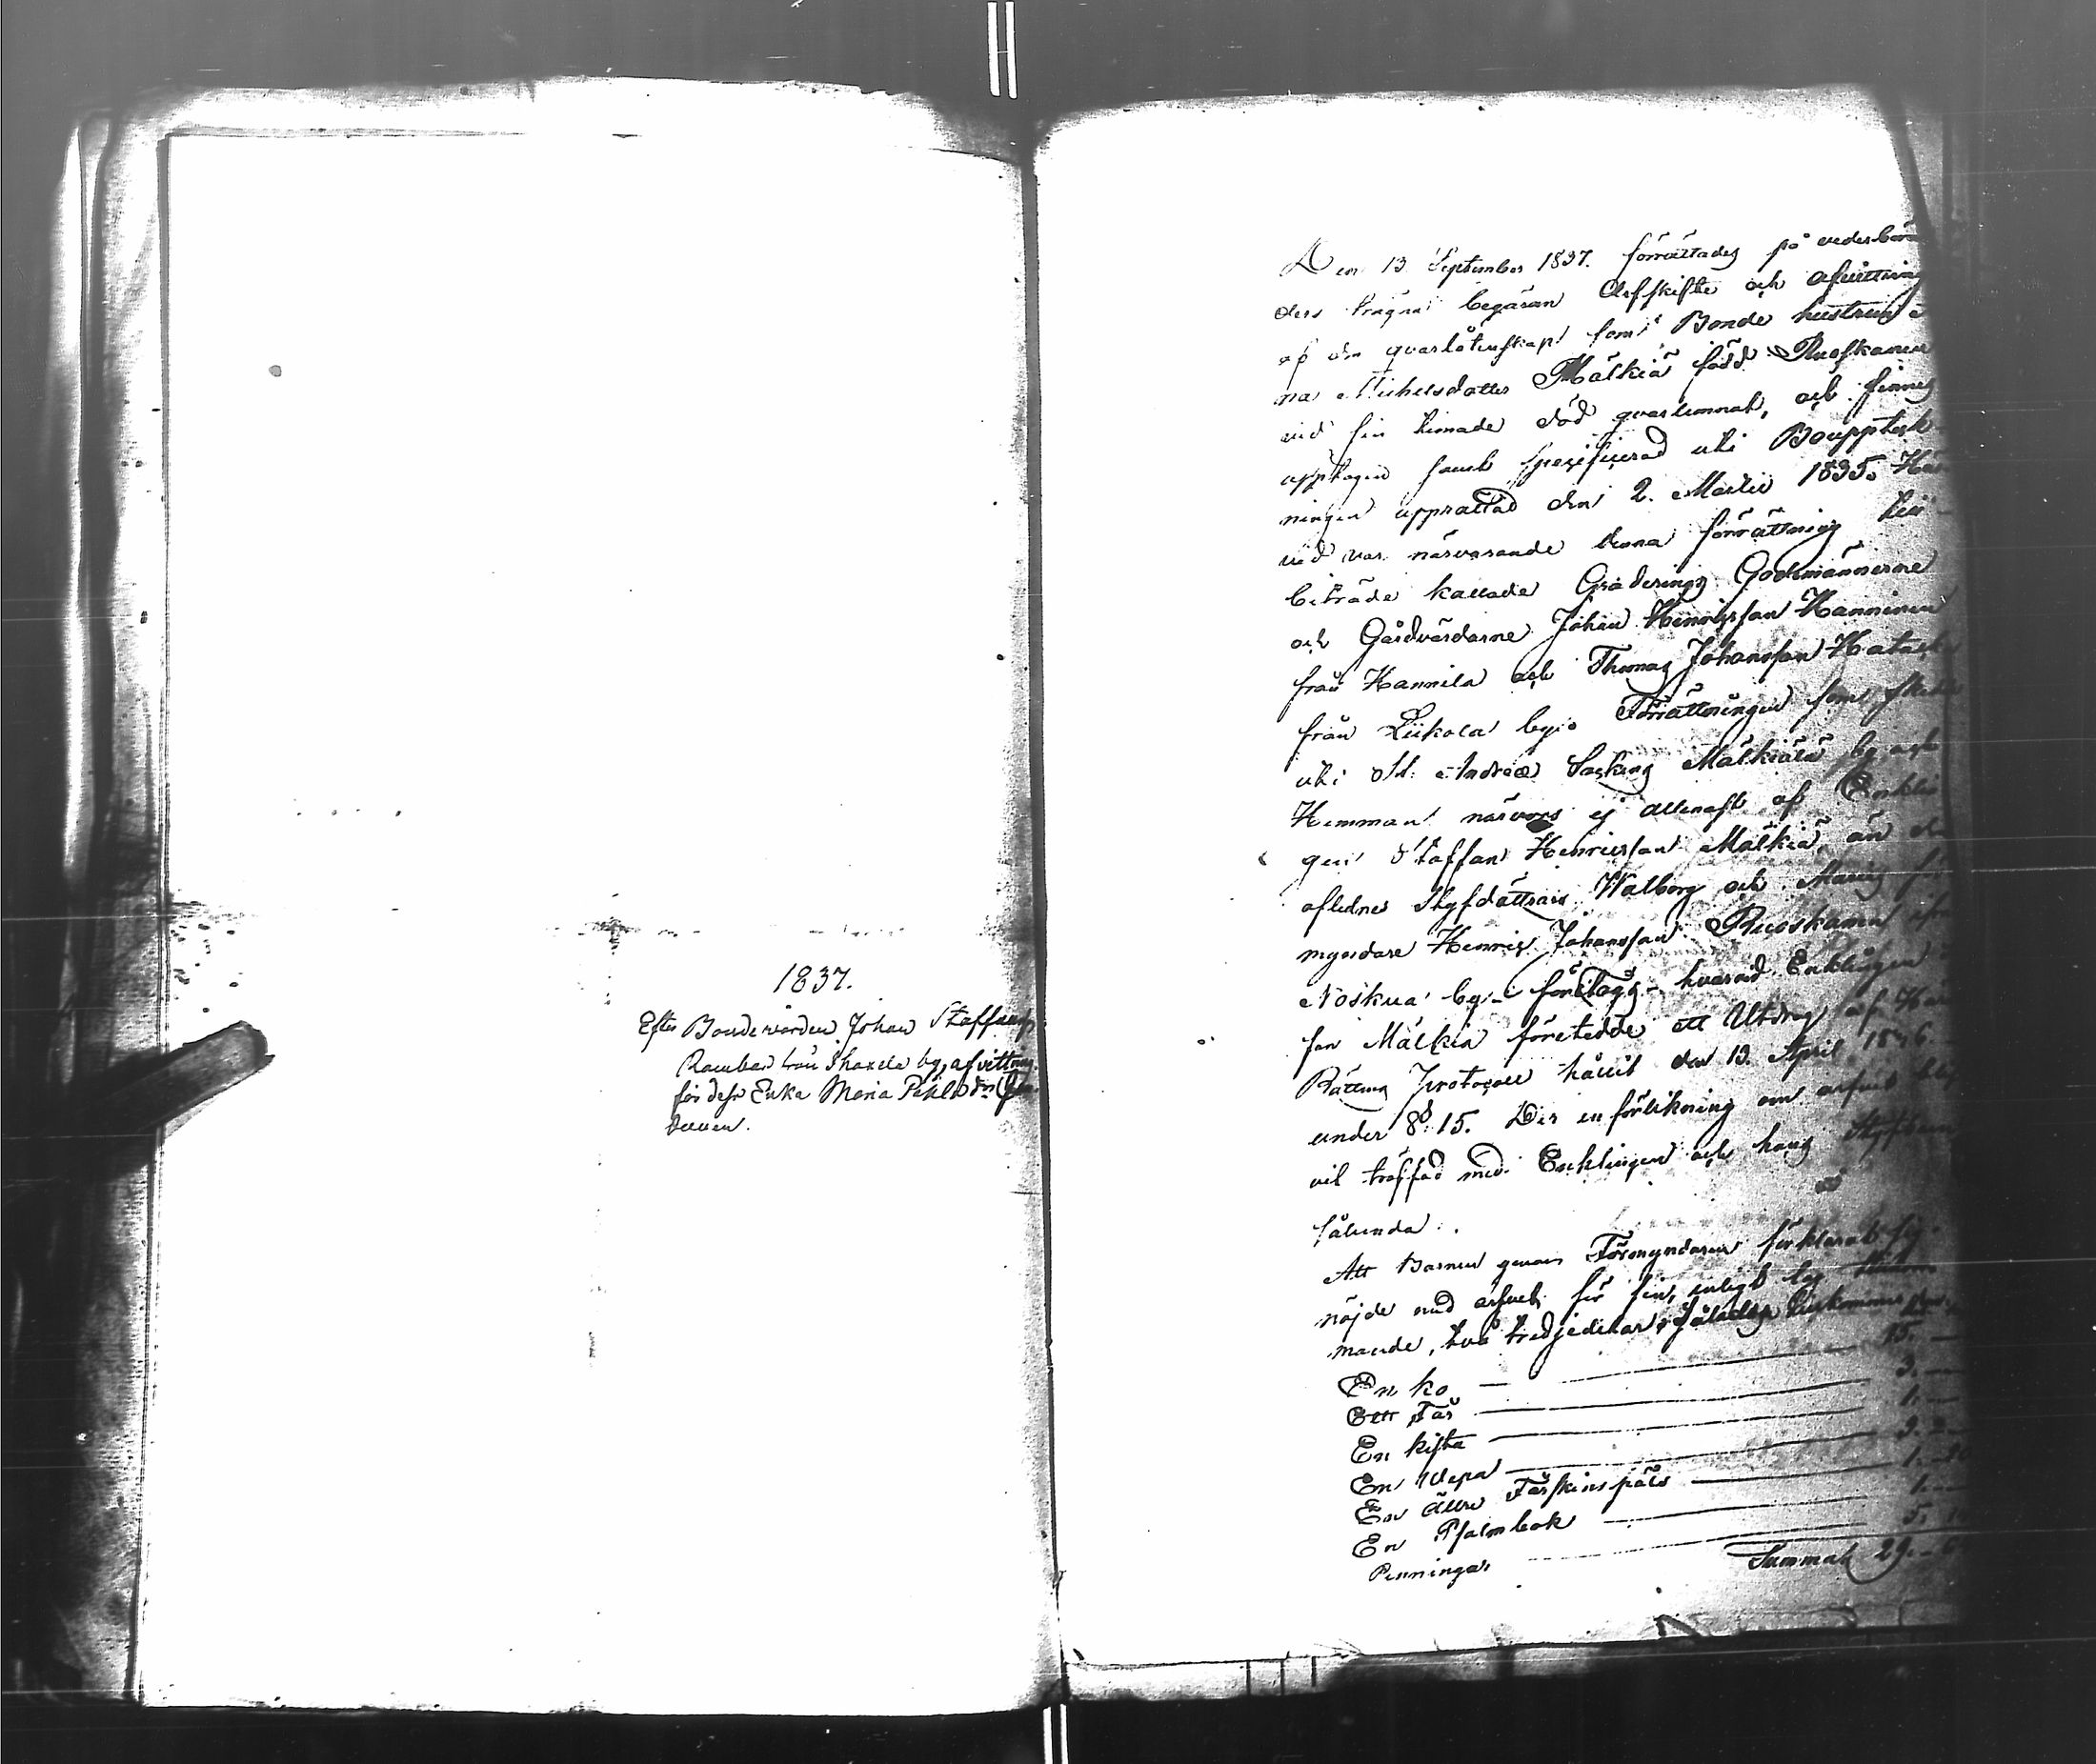 1837.
Efter Bondevärden Johan Staffans
Rambas från Skaxela by, afvittring
för dess Enka Maria Påhlsdr
Den 13 September 1837. förrättades på vederböran
ders trägna begäran Arfskifte och afvittring
af den qvarlåtenskap som Bonde hustrun
na Michelsdotter Mälkiä född Ruoskanen
vid sin timade död qvarlemnat, och finnes
upptagen samt specificerad uti Boupptek-
ningen upprättad den 2. Martii 1835. Här
vid var närvarande denna förrättning till
biträde kallade Graderings Godemännerne
och Gårdvärdarne Johan Henricsson Hanninen
från Hannila och Thomas Johansson Hatakka
från Liikola by. Förrättningen som skedde
uti St. Andreæ Sockns Mälkiälä by och
Hemman närvars ej allenast af Enklin
gen Staffan Henricsson Mälkiä, än
aflednes Styfdöttrars Walborg och Marias för
myndare Henric Johansson Ruoskanen ifrån
Noskua by företogs hvarvid Enklingen
son Mälkiä företedde ett Utdrag af Härads
Rättens Protocoll hållit den 13. April
under § 15. Der en förlikning om arfvet blif
vit träffad med Encklingen och hans Styfbarn
sålunda.
Att Barnen genom Förmyndaren förklarat sig
nöjde med arfvet för sin, enligt lag
mande, två tredjedelar, således
En ko 15
Ett Får 3.
En kista 1.
En Wepa 3.
En ällre Fårskins päls 1.
En Psalmbok 1.
Penningar 5.
Summa 29.